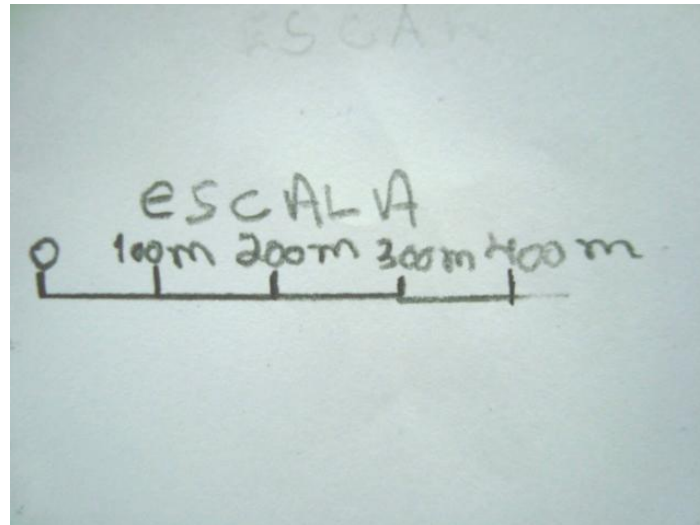 ESCA
eSCALA
0 100m 200m 300m 400m